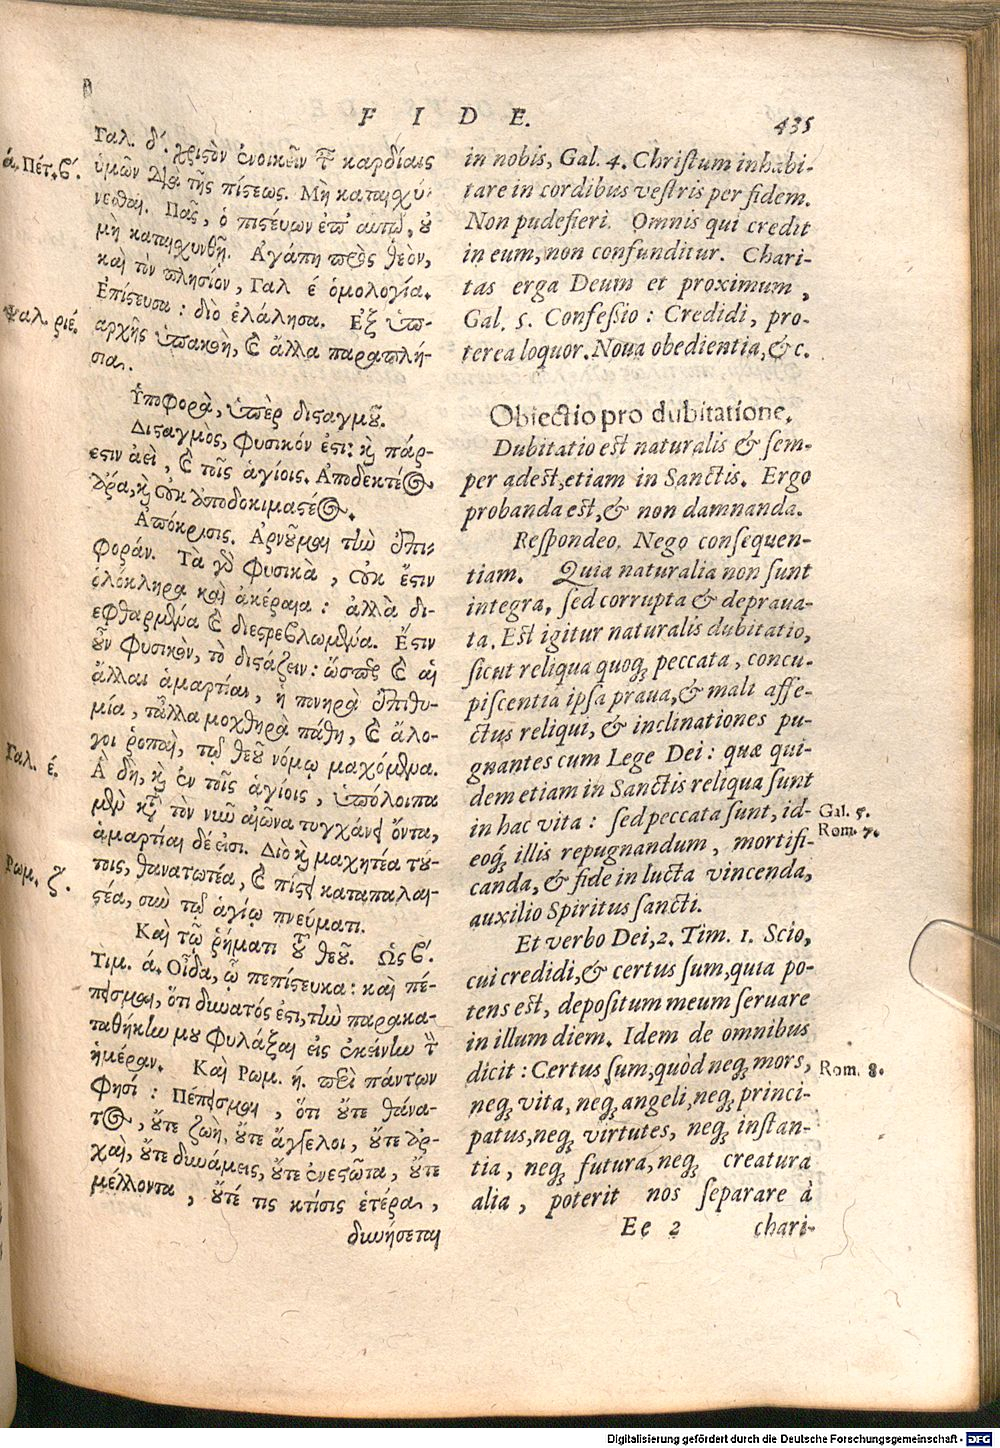 F I D E.
435
Γαλ. δ΄. χριστὸν ἐνοικεῖν τ͂ καρδίαις
ὑμῶν διὰ τῆς πίστεως. Μὴ καταισχύ-
νεσθαι. Πᾶς, ὁ πιστεύων ἐπ᾽ αὐτῷ, οὐ
μὴ καταισχυνθῇ. Ἀγάπη πρὸς θεὸν,
καὶ τὸν πλησίον, Γαλ έ ὁμολογία.
Ἐπίστευσα : διὸ ἐλάλησα. Ἐξ ὑπ-
αρχῆς ὑπακοὴ, καὶ ἄλλα παραπλή-
σια.
ά. Πέτ. β΄.
Ψαλ. ριέ.
Ὑποφορὰ, ὑπὲρ δισταγμοῦ.
Δισταγμὸς, φυσικόν ἐστι: καὶ πάρ-
εστιν ἀεὶ, καὶ τοῖς ἁγίοις. Ἀποδεκτέος
ἄρα, καὶ οὐκ ἀποδοκιμαστέος.
Ἀπόκρισις. Ἀρνοῦμαι τὴν ἐπι-
φοράν. Τὰ γὰρ φυσικὰ, οὐκ ἔστιν
ὁλόκληρα καὶ ἀκέραια : ἀλλὰ δι-
εφθαρμένα καὶ διεστρεβλωμένα. Ἔστιν
οὖν φυσικὸν, τὸ διστάζειν: ὥσπερ καὶ αἱ
ἄλλαι ἁμαρτίαι, ἡ πονηρὰ ἐπιθυ-
μία, τἆλλα μοχθηρὰ πάθη, καὶ ἄλο-
γοι ῥοπαὶ, τῷ θεοῦ νόμῳ μαχόμενα.
Ἃ δὴ, καὶ ἐν τοῖς ἁγίοις, ὑπόλοιπα
μὲν κατὰ τὸν νῦν αἰῶνα τυγχάνει ὄντα,
ἁμαρτίαι δέ εἰσι. Διὸ καὶ μαχητέα τού-
τοις, θανατωτέα, καὶ πίστει καταπαλαι-
στέα, σὺν τῷ ἁγίῳ πνεύματι.
Γαλ. έ.
Ῥωμ. ζ.
Καὶ τῷ ῥήματι τοῦ θεοῦ. Ὡς β΄.
Τιμ. ά. Οἶδα, ᾧ πεπίστευκα: καὶ πέ-
πεισμαι, ὅτι δυνατός ἐστι, τὴν παρακα-
ταθήκην μου φυλάξαι εἰς ἐκείνην τ̀
ἡμέραν. Καὶ Ῥωμ. ή. περὶ πάντων
φησί : Πέπεισμαι, ὅτι οὔτε θάνα-
τος, οὔτε ζωὴ, οὔτε ἄγγελοι, οὔτε ἀρ-
χαὶ, οὔτε δυνάμεις, οὔτε ἐνεστῶτα, οὔτε
μέλλοντα, οὔτέ τις κτίσις ἑτέρα,
δυνήσεται
in nobis, Gal. 4. Christum inhabi-
tare in cordibus vestris per fidem.
Non pudefieri. Omnis qui credit
in eum, non confunditur. Chari-
tas erga Deum et proximum,
Gal. 5. Confessio : Credidi, pro-
terea loquor. Noua obedientia, &c.
Obiectio pro dubitatione.
Dubitatio est naturalis & sem-
per adest, etiam in Sanctis. Ergo
probanda est, & non damnanda.
Respondeo. Nego consequen-
tiam. Quia naturalia non sunt
integra, sed corrupta & deprava-
ta. Est igitur naturalis dubitatio,
sicut reliqua quoq; peccata, concu-
piscentia ipsa praua, & mali affe-
ctus reliqui, & inclinationes pu-
gnantes cum Lege Dei : quæ qui-
dem etiam in Sanctis reliqua sunt
in hac vita : sed peccata sunt, id-
eoq; illis repugnandum, mortifi-
canda, & fide in lucta vincenda,
auxilio Spiritus sancti.
Gal. 5.
Rom. 7.
Et verbo Dei, 2. Tim. 1. Scio,
cui credidi, & certus sum, quia po-
tens est, depositum meum seruare
in illum diem. Idem de omnibus
dicit : Certus sum, quòd neq; mors,
neq; vita, neq; angeli, neq; princi-
patus, neq; virtutes, neq; instan-
tia, neq; futura, neq; creatura
alia, poterit nos separare à
Rom. 8.
Ee 2
chari-
Digitalisierung gefördert durch die Deutsche Forschungsgemeinschaft - DFG